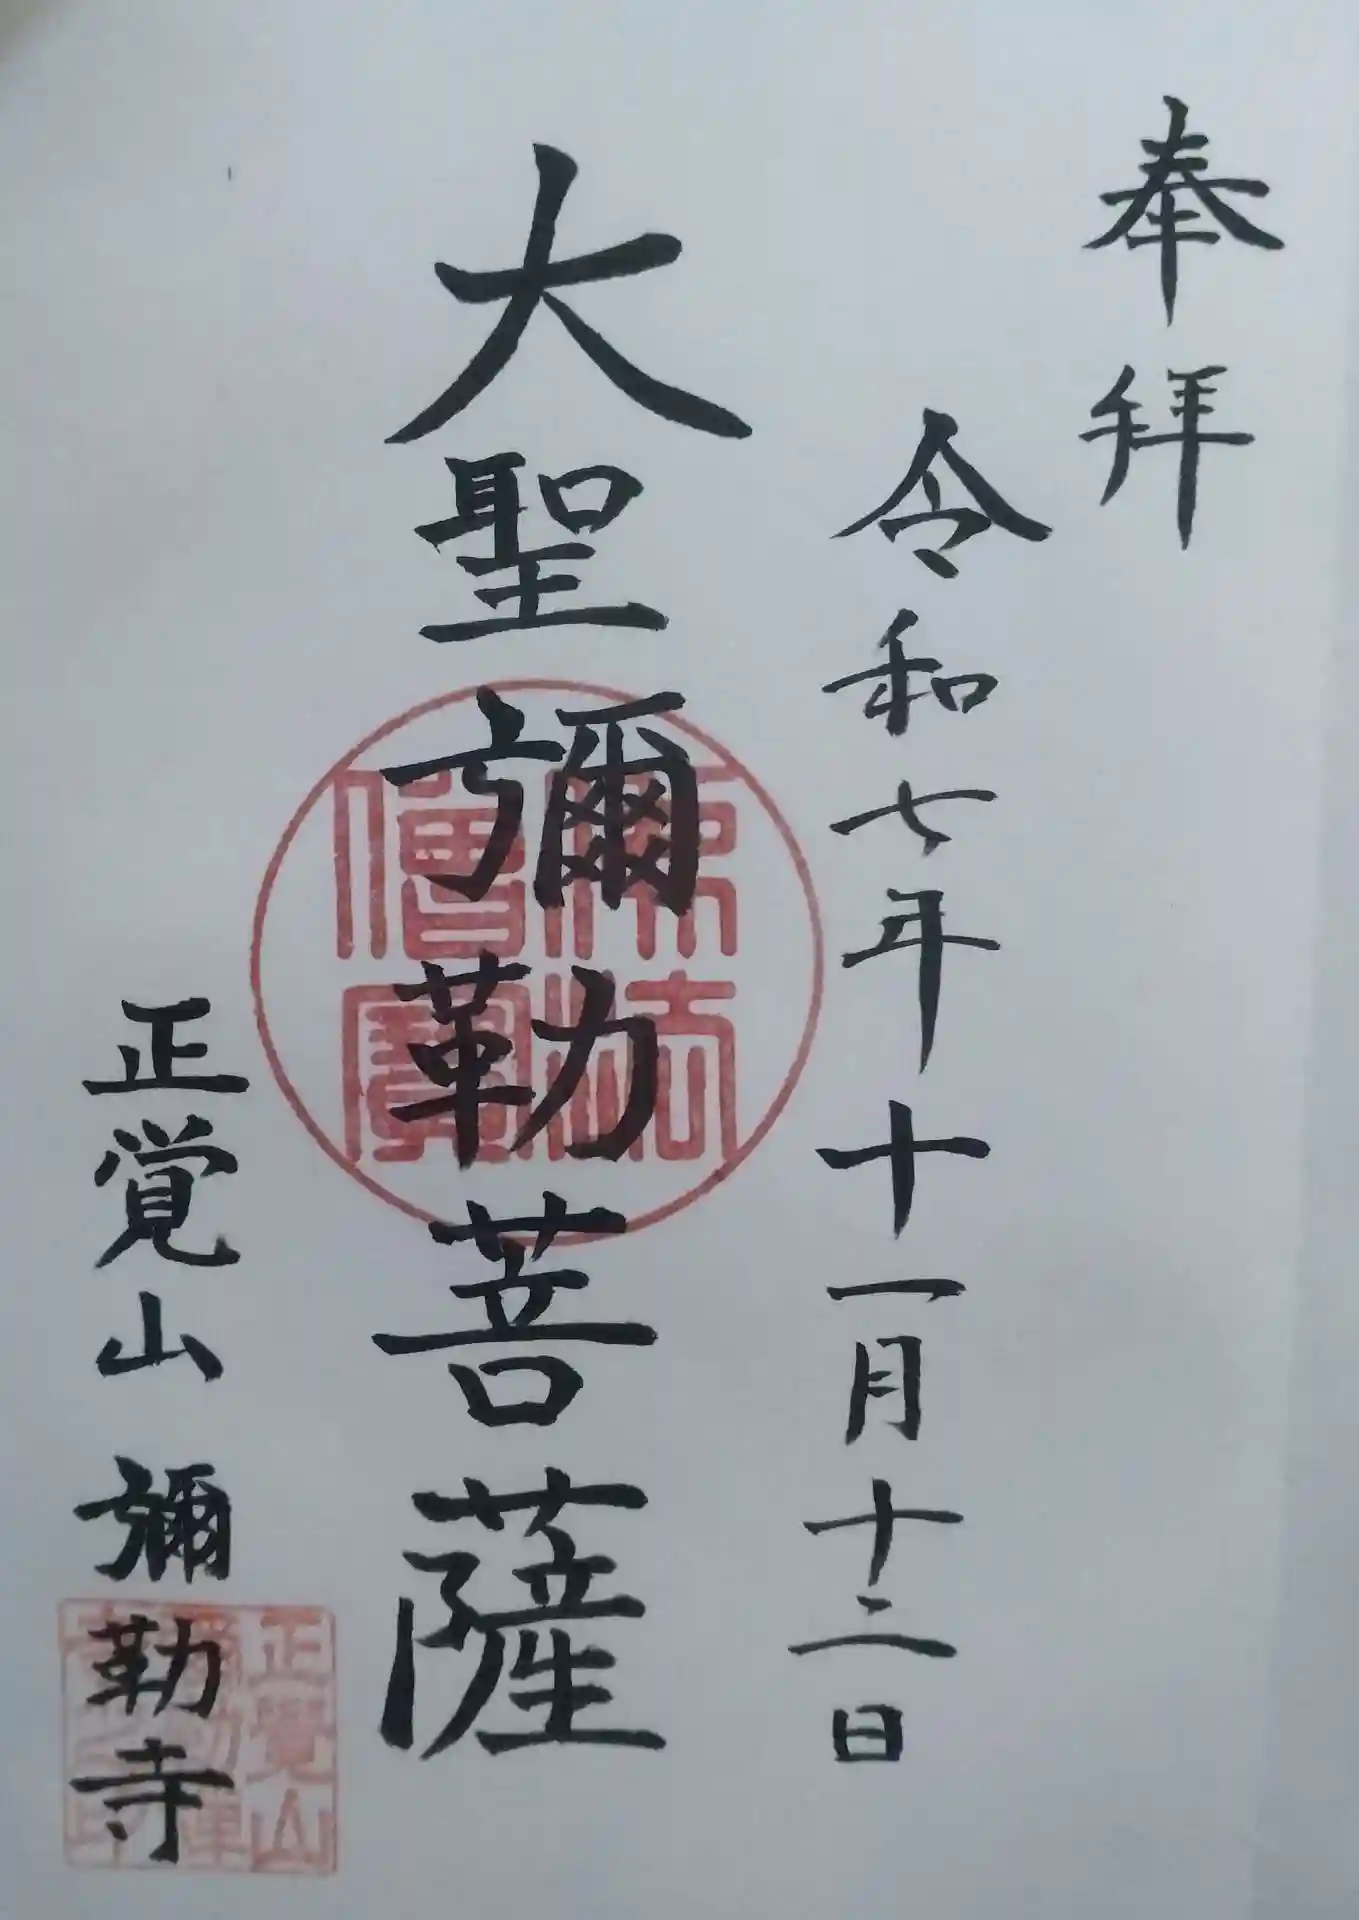 奉拜
令和七年十一月十二日
大聖彌勒菩薩
佛法
僧寳
正覚山彌勒寺
正覺山